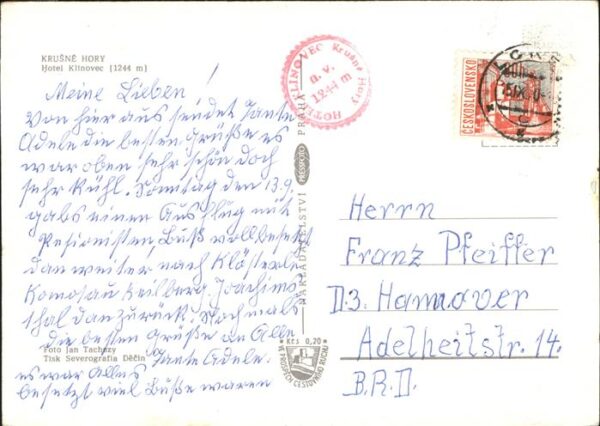 KRUŠNÉ HORY
Hotel Klínovec (1244 m)
Meine Lieben!
Von hier aus sendet Tante
Adele die besten Grüße es
war oben sehr schön doch
sehr Kühl. Sonntag den 13.9.
gabs einen Ausflug mit
Pesionisten, Buß vollbesetzt
dan weiter nach Klösterle
Komotau Keilberg, Joachims
thal dan zurück. Nochmals
die besten Grüße an Alle
Tante Adele.
es war Alles
besetzt viel Buße waren
Foto Jan Tachezy
Tisk Severografia Děčín
HOTEL KLÍNOVEC Krušné Hory
n. v.
1244 m
NAKLADATELSTVÍ PRESSFOTO PRAHA
Kčs 0,20
ČESKOSLOVENSKO
Herrn
Franz Pfeiffer
D.3. Hannover
Adelheitstr. 14.
B.R.D.